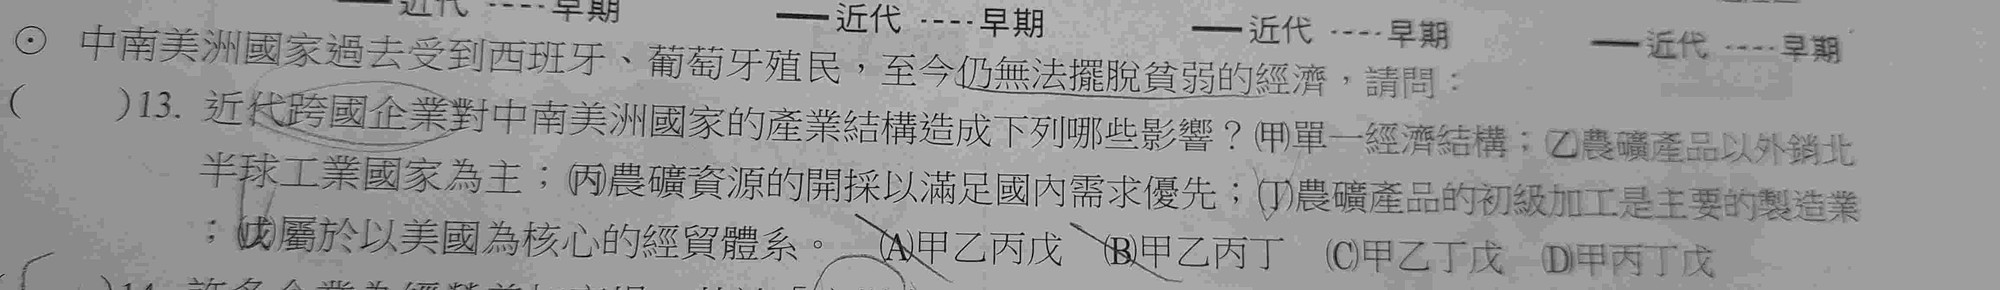 近代 ---- 早期 — 近代 ---- 早期 — 近代 ---- 早期 — 近代 ---- 早期
⊙ 中南美洲國家過去受到西班牙、葡萄牙殖民，至今仍無法擺脫貧弱的經濟，請問：
( )13. 近代跨國企業對中南美洲國家的產業結構造成下列哪些影響？(甲)單一經濟結構；(乙)農礦產品以外銷北
半球工業國家為主；(丙)農礦資源的開採以滿足國內需求優先；(丁)農礦產品的初級加工是主要的製造業
；(戊)屬於以美國為核心的經貿體系。 (A)甲乙丙戊 (B)甲乙丙丁 (C)甲乙丁戊 (D)甲丙丁戊